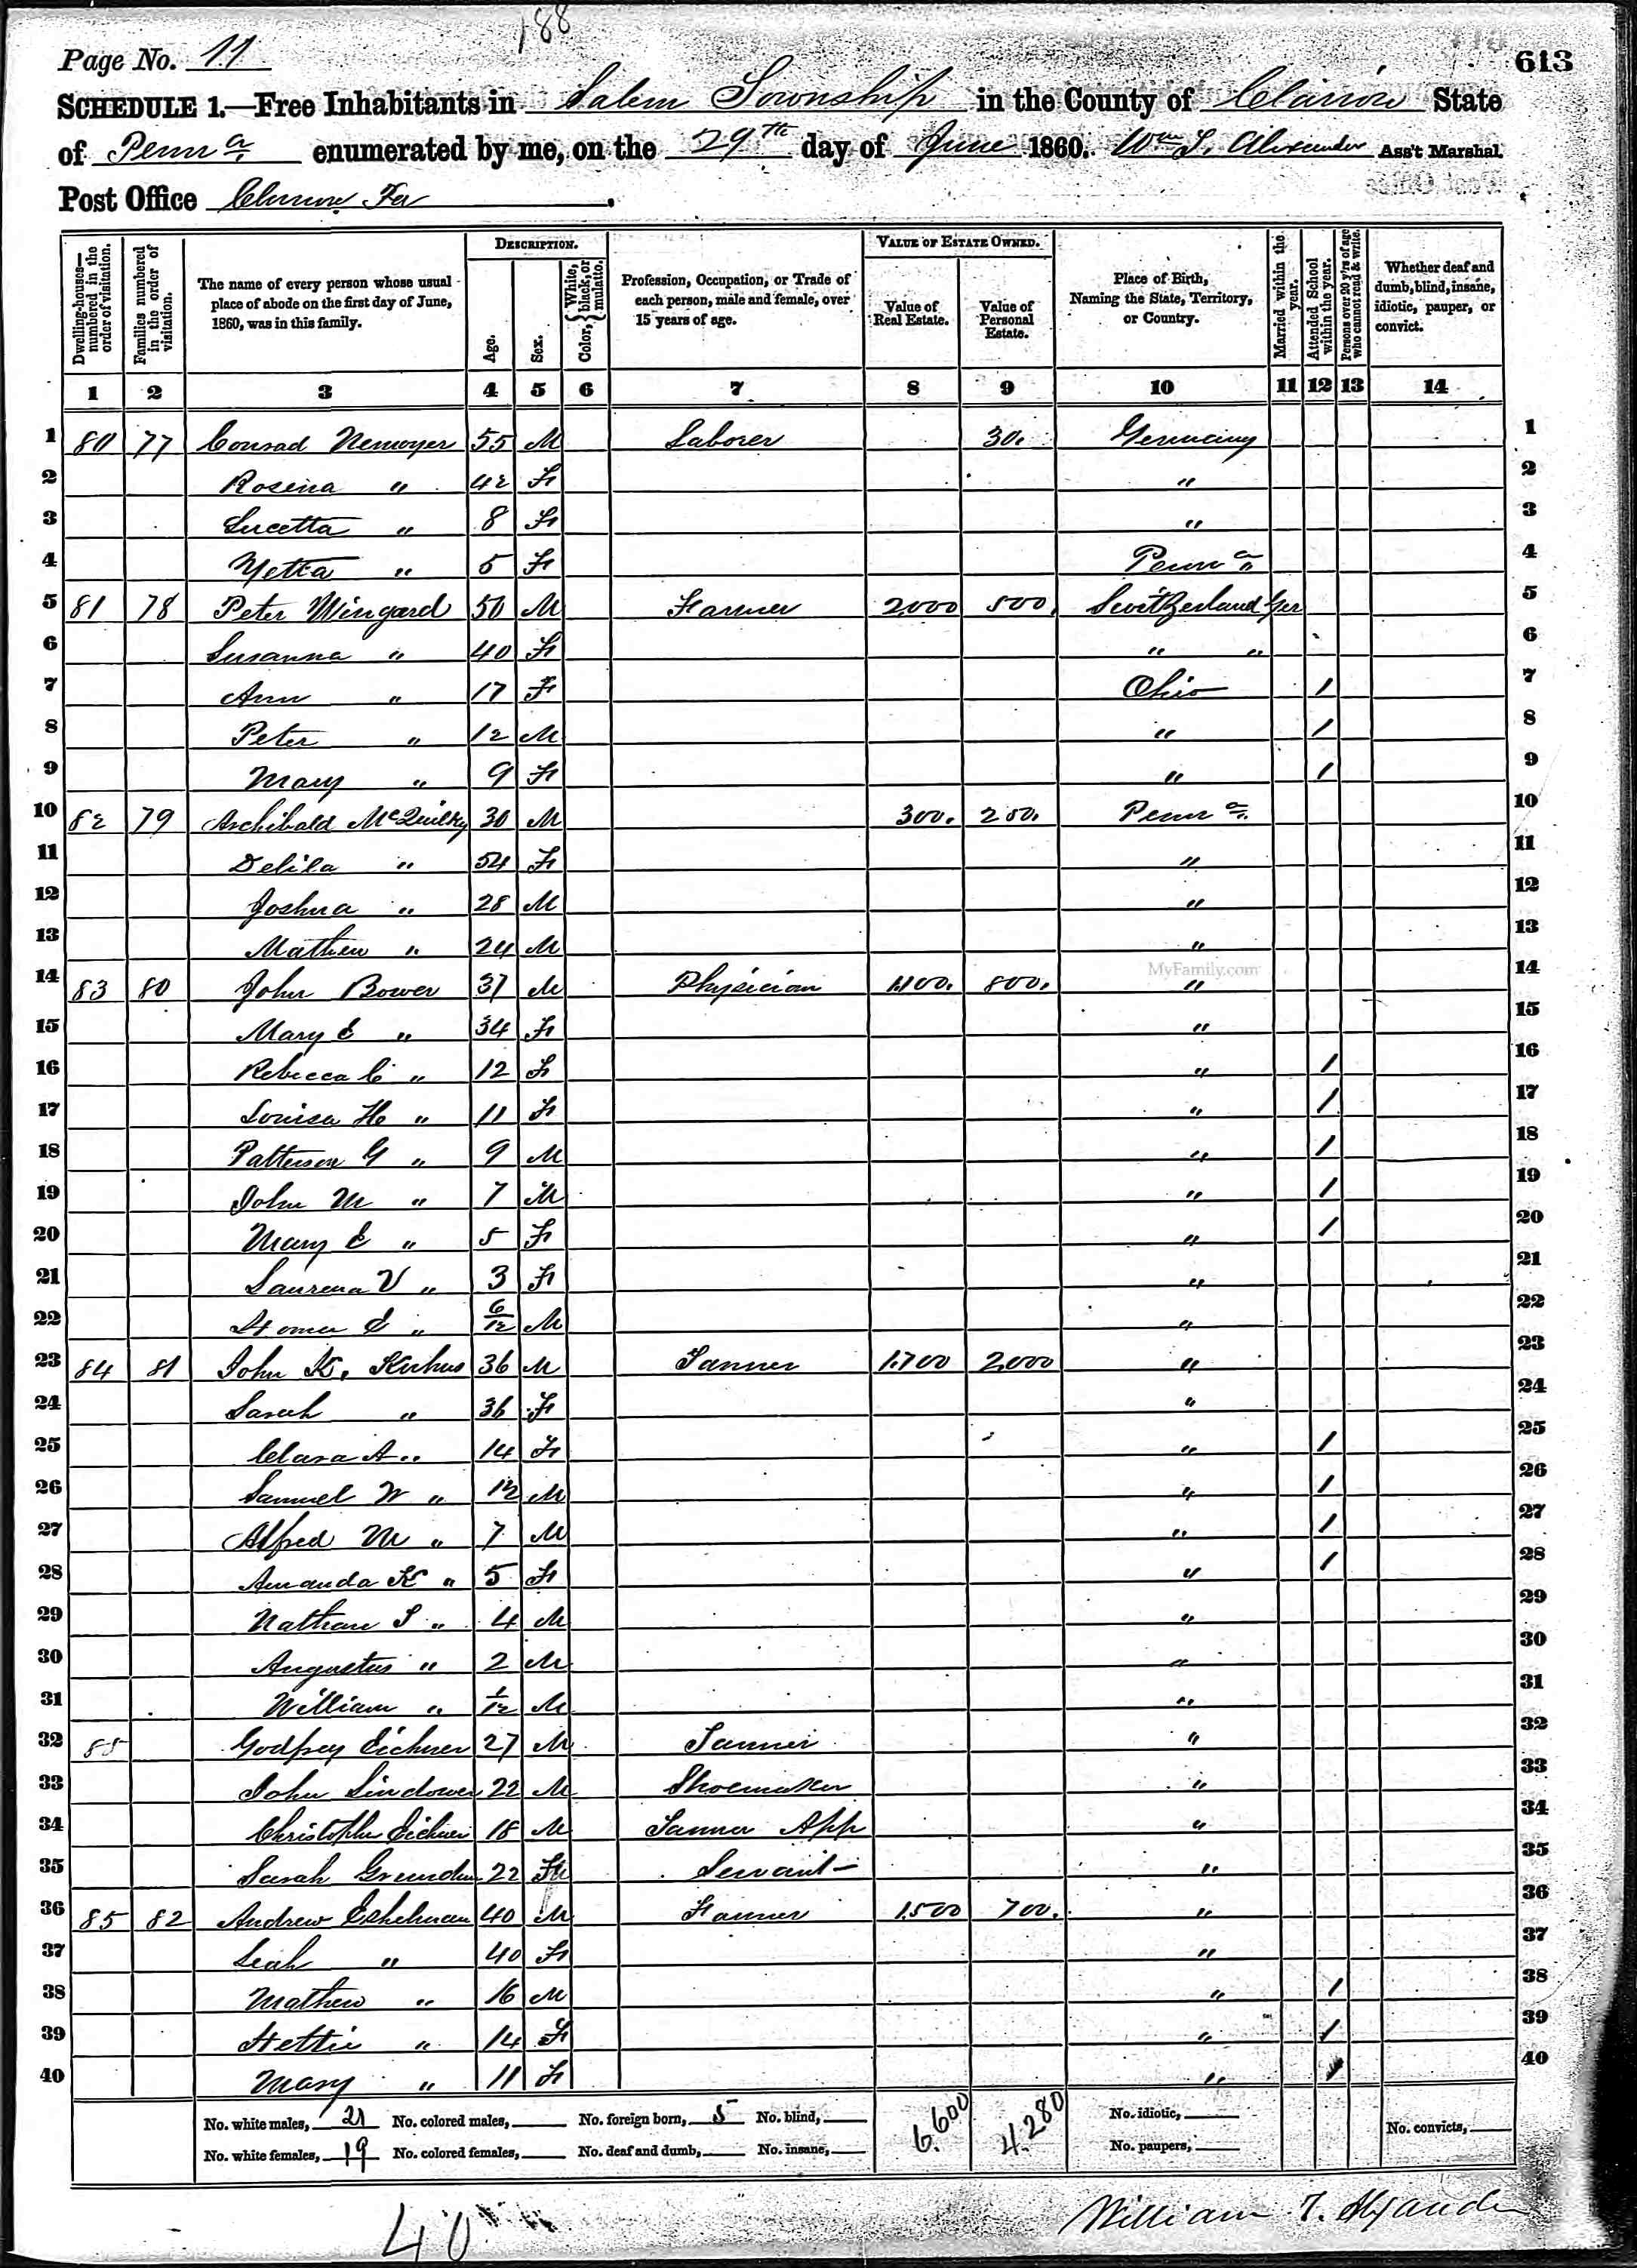 188
Page No. 11
613
SCHEDULE 1.—Free Inhabitants in Salem Township in the County of Clarion State
of Penn a enumerated by me, on the 29th day of June 1860. Wm T. Alexander Ass't Marshal.
Post Office
Dwelling-houses—numbered in the order of visitation.
Families numbered in the order of visitation.
The name of every person whose usual place of abode on the first day of June, 1860, was in this family.
DESCRIPTION.
Age.
Sex.
Color, { White, black, or mulatto.
Profession, Occupation, or Trade of each person, male and female, over 15 years of age.
VALUE OF ESTATE OWNED.
Value of Real Estate.
Value of Personal Estate.
Place of Birth, Naming the State, Territory, or Country.
Married within the year.
Attended School within the year.
Persons over 20 y'rs of age who cannot read & write.
Whether deaf and dumb, blind, insane, idiotic, pauper, or convict.
1 2 3 4 5 6 7 8 9 10 11 12 13 14
1 80 77 Conrad Nemoyer 55 M Laborer 30. Germany 1
2 Rosena " 42 F " 2
3 Lucetta " 8 F " 3
4 Yetta " 5 F Penn a 4
5 81 78 Peter Wingard 50 M Farmer 2000 500. Switzerland Ger 5
6 Susanna " 40 F " " 6
7 Ann " 17 F Ohio / 7
8 Peter " 12 M " / 8
9 Mary " 9 F " / 9
10 82 79 Archibald 30 M 300. 250. Penn a 10
11 Delila " 54 F " 11
12 Joshua " 28 M " 12
13 Mathew " 24 M " 13
MyFamily.com
14 83 80 John Bower 37 M Physician 1,100. 800. " 14
15 Mary E " 34 F " 15
16 Rebecca C " 12 F " / 16
17 Louisa H " 11 F " / 17
18 Patterson G " 9 M " / 18
19 John M " 7 M " / 19
20 Mary E " 5 F " / 20
21 Laurena V " 3 F " 21
22 Homer E " 6/12 M " 22
23 84 81 John K. 36 M Tanner 1,700 2,000 " 23
24 Sarah " 36 F " 24
25 Clara A " 14 F " / 25
26 Samuel W " 12 M " / 26
27 Alfred M " 7 M " / 27
28 Amanda K " 5 F " / 28
29 Nathan S " 4 M " 29
30 Augustus " 2 M " 30
31 William " 1/12 M " 31
32 Godfrey Eichner 27 M Tanner " 32
33 John 22 M Shoemaker " 33
34 Christopher Eichner 18 M Tanner App " 34
35 Sarah 22 F Servant " 35
36 85 82 Andrew Eshelman 40 M Farmer 1,500 700. " 36
37 Leah " 40 F " 37
38 Mathew " 16 M " / 38
39 Hettie " 14 F " / 39
40 Mary " 11 F " / 40
No. white males, 21 No. colored males, No. foreign born, 5 No. blind, 6,600 4,280 No. idiotic, No. convicts,
No. white females, 19 No. colored females, No. deaf and dumb, No. insane, No. paupers,
40
William T. Alexander